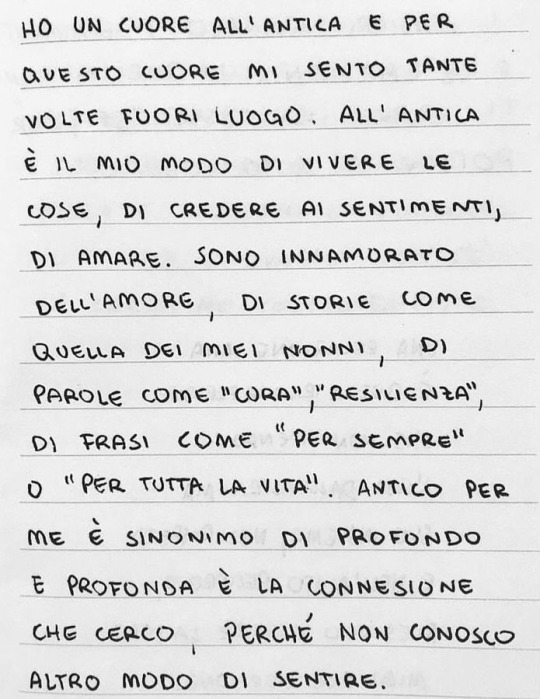 HO UN CUORE ALL'ANTICA E PER
QUESTO CUORE MI SENTO TANTE
VOLTE FUORI LUOGO. ALL'ANTICA
È IL MIO MODO DI VIVERE LE
COSE, DI CREDERE AI SENTIMENTI,
DI AMARE. SONO INNAMORATO
DELL'AMORE, DI STORIE COME
QUELLA DEI MIEI NONNI, DI
PAROLE COME "CURA", "RESILIENZA",
DI FRASI COME "PER SEMPRE"
O "PER TUTTA LA VITA". ANTICO PER
ME È SINONIMO DI PROFONDO
E PROFONDA È LA CONNESIONE
CHE CERCO, PERCHÉ NON CONOSCO
ALTRO MODO DI SENTIRE.